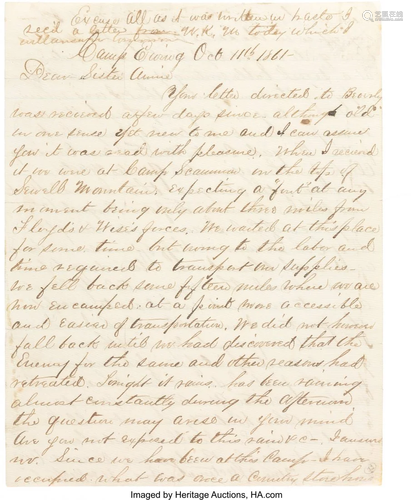 Excuse all as it was written in haste I
rec'd a letter from W.K. M today which I
will answer tomorrow
Camp Ewing Oct 11th 1861
Dear Sister Annie
Your letter directed to Beverly
was received a few days since although "old"
in one sense yet new to me and I can assure
you it was read with pleasure. When I received
it we were at Camp Scammon on the top of
Sewell Mountain expecting a "fight" at any
moment being only about three miles from
Floyds & Wise's forces. We waited at this place
for some time but owing to the labor and
time required to transport our supplies
we fell back some fifteen miles where we are
now encamped at a point more accessible
and easier of transportation. We did not however
fall back until we had discovered that the
Enemy for the same and other reasons had
retreated. Tonight it rains has been raining
almost constantly during the afternoon
the question may arise in your mind
are you not exposed to this rain &c - I answer
no. Since we have been at this Camp I have
occupied what was once a Country Storehouse
Imaged by Heritage Auctions, HA.com